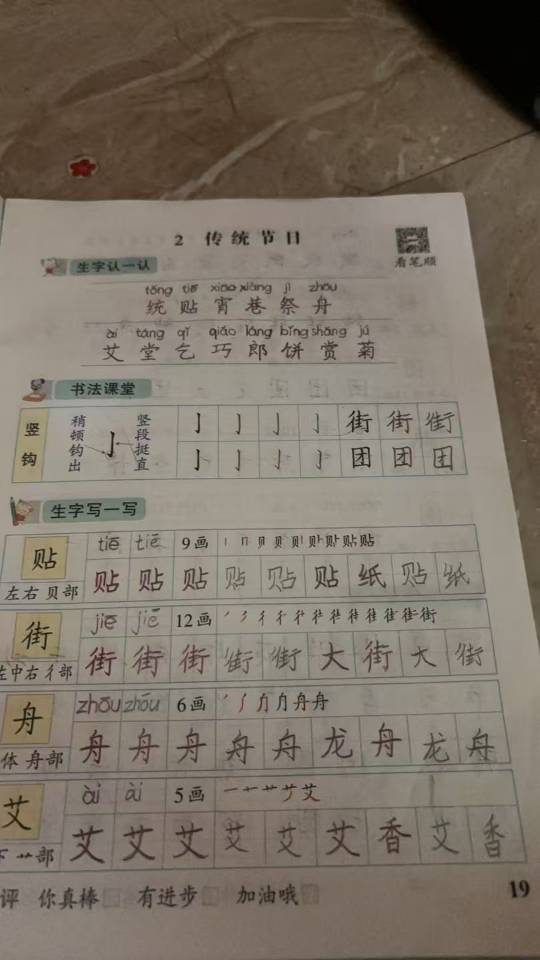 2 传统节日
看笔顺
生字认一认
tǒng tiē xiāo xiàng jì zhōu
统 贴 宵 巷 祭 舟
ài táng qǐ qiǎo láng bǐng shǎng jú
艾 堂 乞 巧 郎 饼 赏 菊
书法课堂
竖钩 稍顿钩出 亅 竖段挺直 亅 亅 亅 亅 街 街 街
亅 亅 亅 亅 团 团 团
生字写一写
贴 tiē tiē 9画
左右 贝部 贴 贴 贴 贴 贴 贴 纸 贴 纸
街 jiē jiē 12画
左中右 彳部 街 街 街 街 街 大 街 大 街
舟 zhōu zhōu 6画
体 舟部 舟 舟 舟 舟 舟 龙 舟 龙 舟
艾 ài ài 5画
下 艹部 艾 艾 艾 艾 艾 艾 香 艾 香
评 你真棒 有进步 加油哦
19